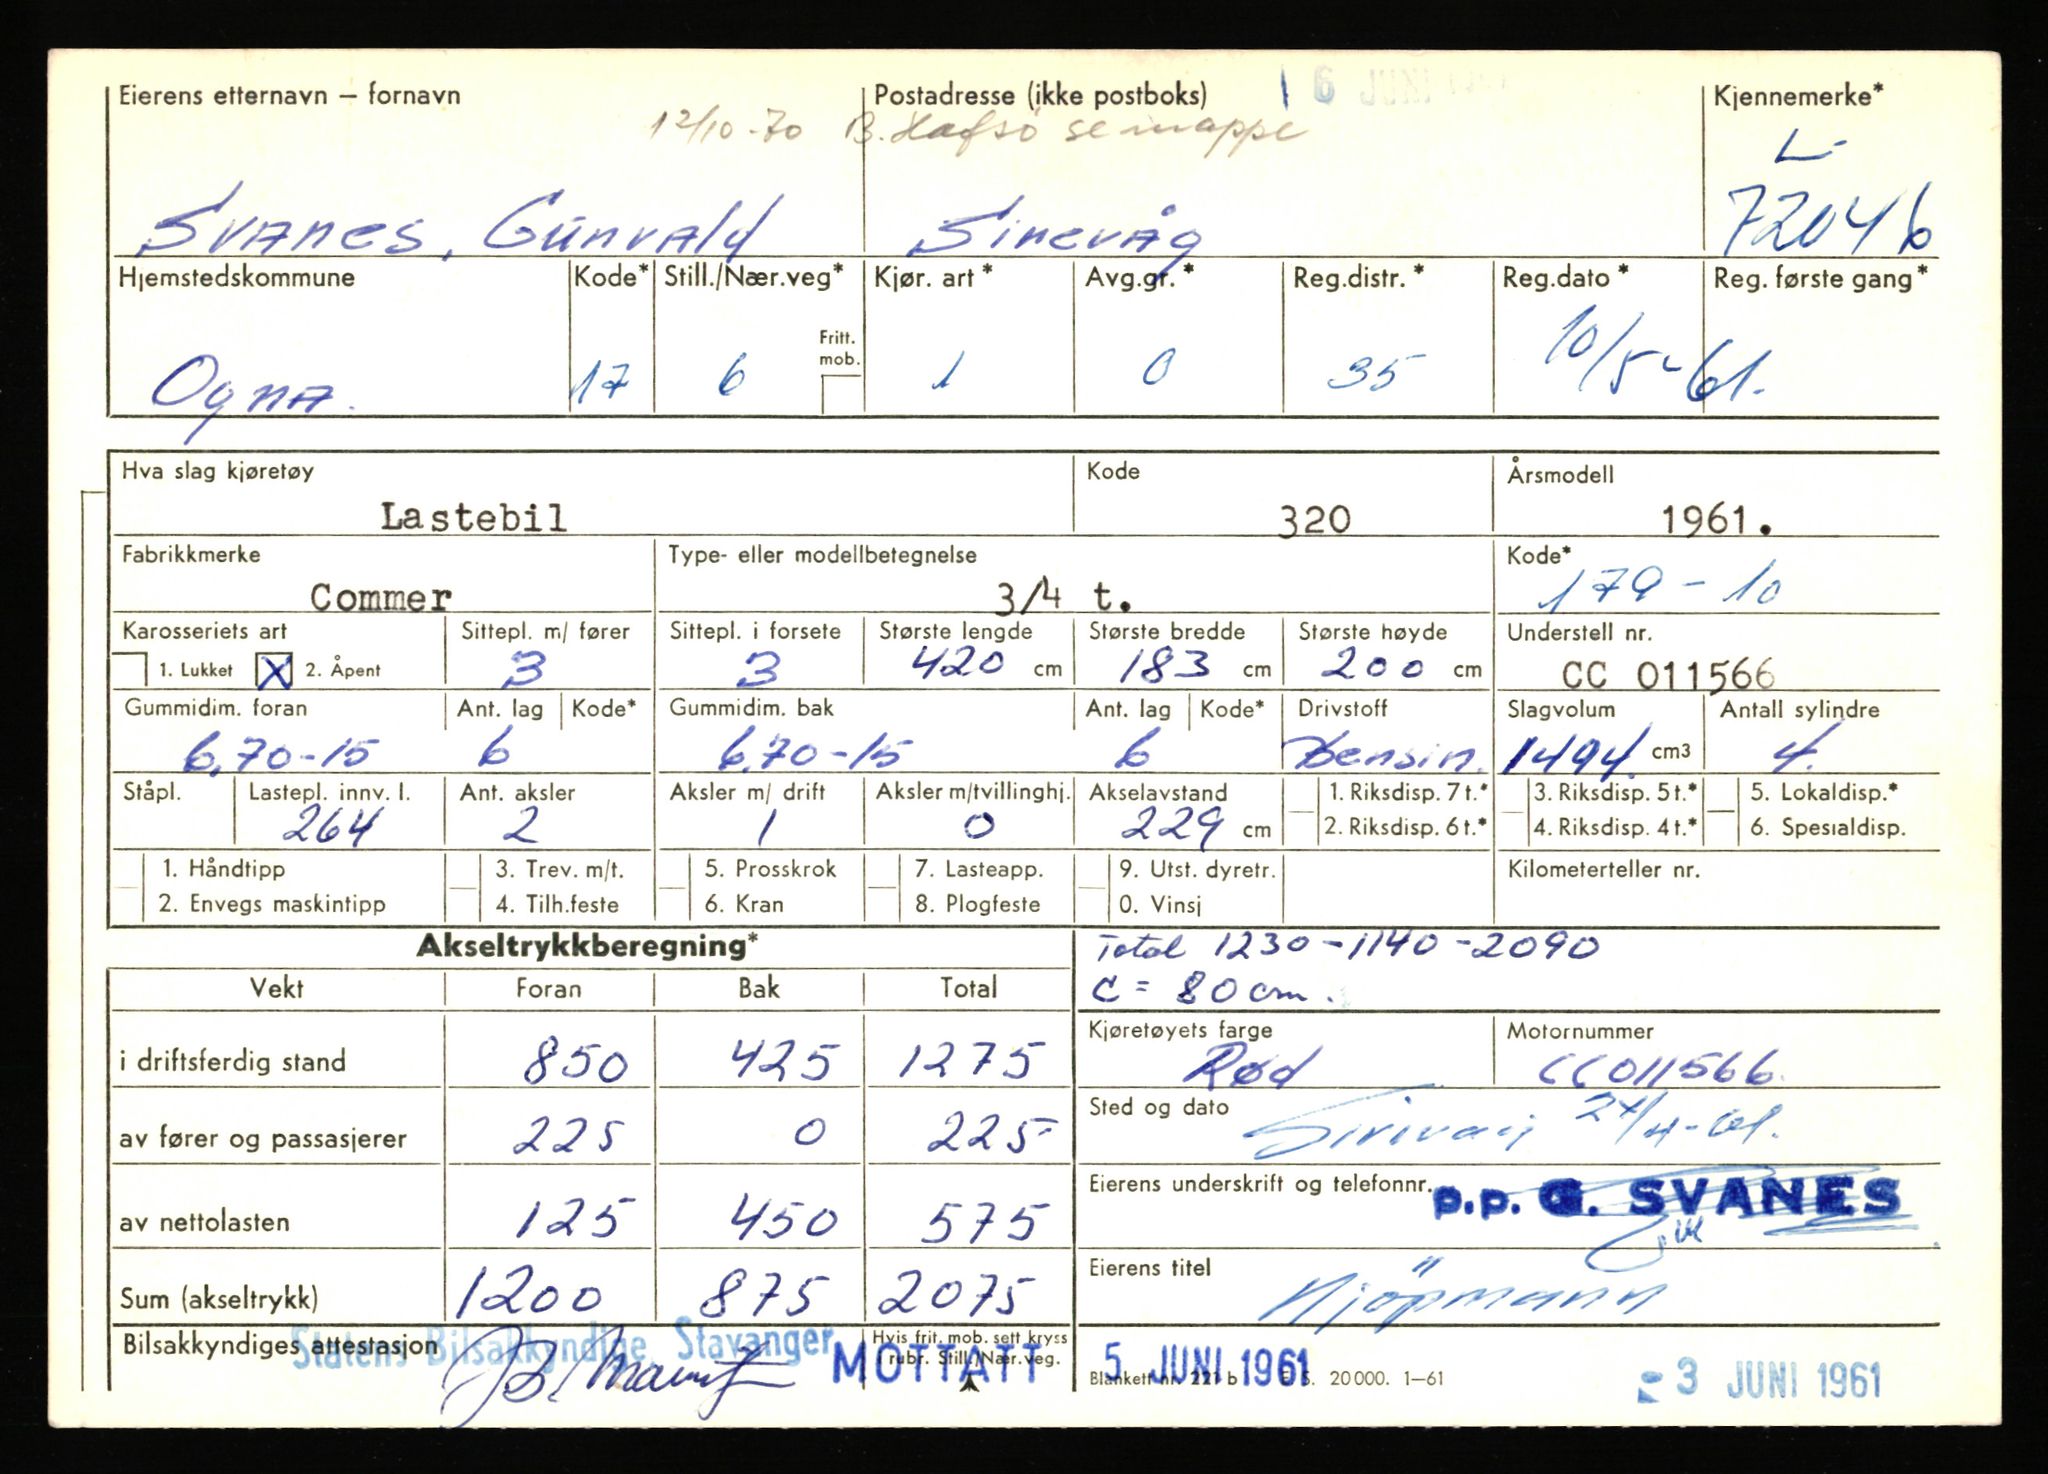 Eierens etternavn – fornavn Postadresse (ikke postboks) 16 JUNI Kjennemerke*
12/10-70 B. Hafsö se mappe
L-
Svanes, Gunvald Sirevåg 72046
Hjemstedskommune Kode* Still./Nær.veg* Kjør. art* Avg.gr.* Reg.distr.* Reg.dato* Reg. første gang*
Fritt. mob.
Ogna. 17 6 1 0 35 10/5-61.
Hva slag kjøretøy Kode Årsmodell
Lastebil 320 1961.
Fabrikkmerke Type- eller modellbetegnelse Kode*
Commer 3/4 t. 179-10
Karosseriets art Sittepl. m/ fører Sittepl. i forsete Største lengde Største bredde Største høyde Understell nr.
1. Lukket X 2. Åpent 3 3 420 cm 183 cm 200 cm CC 011566
Gummidim. foran Ant. lag Kode* Gummidim. bak Ant. lag Kode* Drivstoff Slagvolum Antall sylindre
6,70-15 6 6,70-15 6 Bensin. 1494. cm3 4.
Ståpl. Lastepl. innv. l. Ant. aksler Aksler m/ drift Aksler m/tvillinghj. Akselavstand 1. Riksdisp. 7 t.* 3. Riksdisp. 5 t.* 5. Lokaldisp.*
264 2 1 0 229 cm 2. Riksdisp. 6 t.* 4. Riksdisp. 4 t.* 6. Spesialdisp.
1. Håndtipp 3. Trev. m/t. 5. Prosskrok 7. Lasteapp. 9. Utst. dyretr. Kilometerteller nr.
2. Envegs maskintipp 4. Tilh.feste 6. Kran 8. Plogfeste 0. Vinsj
Akseltrykkberegning* Total 1230-1140-2090
Vekt Foran Bak Total C = 80 cm.
Kjøretøyets farge Motornummer
i driftsferdig stand 850 425 1275 Rød CC011566.
Sted og dato
av fører og passasjerer 225 0 225 Sirevåg 24/4-61.
Eierens underskrift og telefonnr. p.p. G. SVANES
av nettolasten 125 450 575
Eierens titel
Sum (akseltrykk) 1200 875 2075 Kjöpmann
Bilsakkyndiges attestasjon Statens Bilsakkyndige, Stavanger Hvis frit. mob. sett kryss
i rubr. Still./Nær.veg. MOTTATT 5. JUNI 1961 Blankett nr. 221 b E. S. 20 000. 1–61 3 JUNI 1961